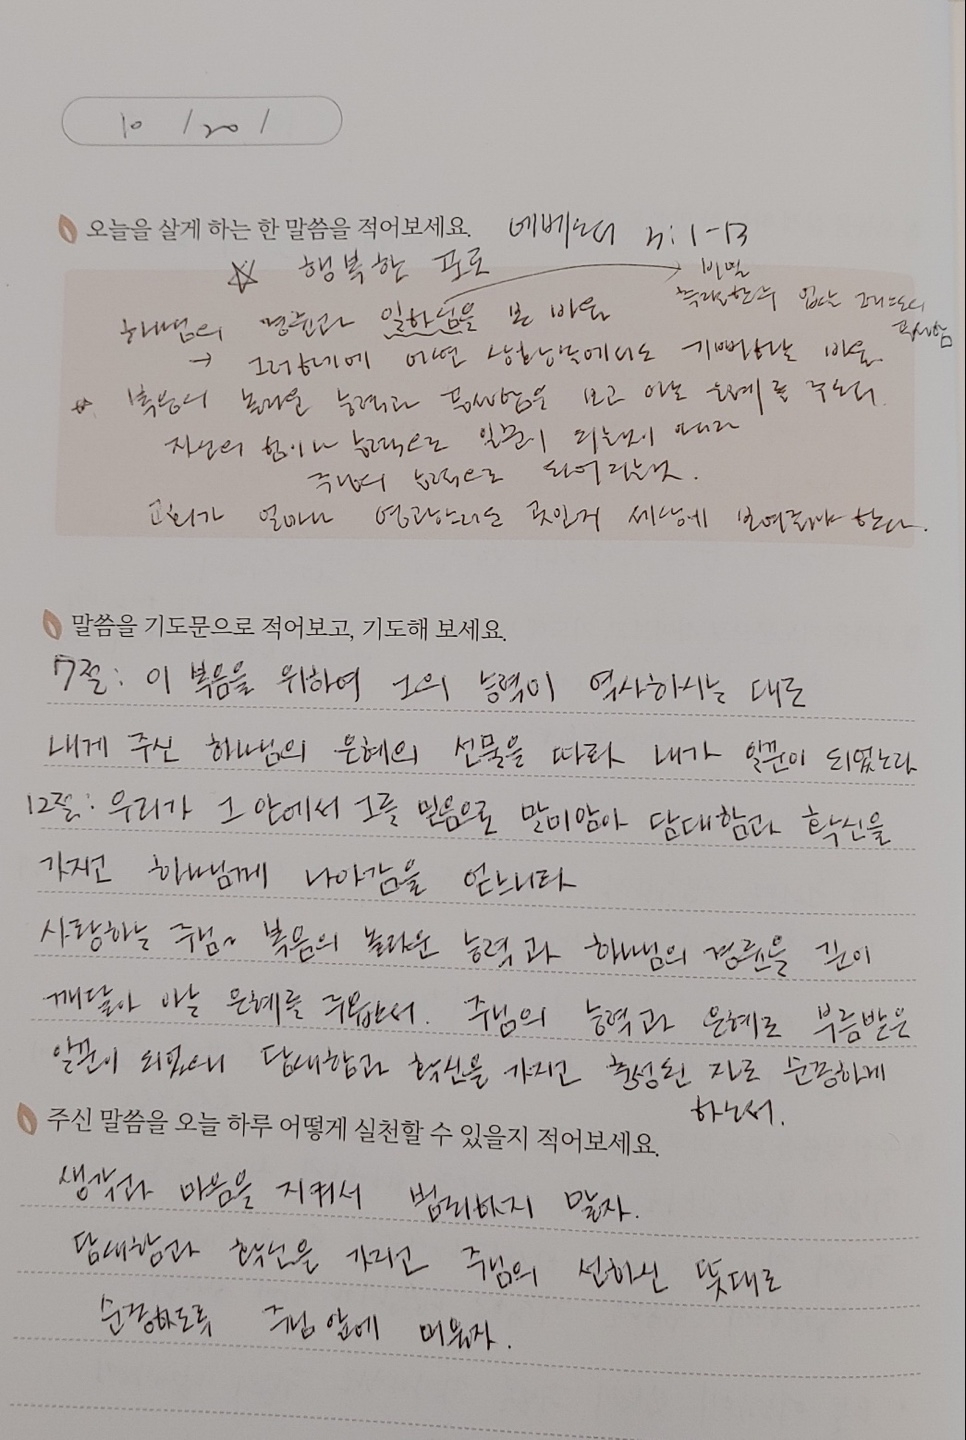 10 / 20 /
오늘을 살게 하는 한 말씀을 적어보세요. 에베소서 3:1-13
☆ 행복한 포로
비밀
측량할수 없는 그리스도의
풍성함
하나님의 경륜과 일하심을 본 바울
→ 그러하기에 어떤 상황속에서도 기뻐하는 바울
* 복음의 놀라운 능력과 풍성함을 보고 아는 은혜를 주소서.
자신의 힘이나 능력으로 일꾼이 되는것이 아니라
주님의 능력으로 되어지는것.
교회가 얼마나 영광스러운 곳인지 세상에 보여줘야 한다.
말씀을 기도문으로 적어보고, 기도해 보세요.
7절: 이 복음을 위하여 그의 능력이 역사하시는 대로
내게 주신 하나님의 은혜의 선물을 따라 내가 일꾼이 되었노라
12절: 우리가 그 안에서 그를 믿음으로 말미암아 담대함과 확신을
가지고 하나님께 나아감을 얻느니라
사랑하는 주님~ 복음의 놀라운 능력과 하나님의 경륜을 깊이
깨달아 아는 은혜를 주옵소서. 주님의 능력과 은혜로 부름받은
일꾼이 되었으니 담대함과 확신을 가지고 충성된 자로 순종하게
하소서.
주신 말씀을 오늘 하루 어떻게 실천할 수 있을지 적어보세요.
생각과 마음을 지켜서 범죄하지 말자.
담대함과 확신을 가지고 주님의 선하신 뜻대로
순종하도록 주님 앞에 머물자.